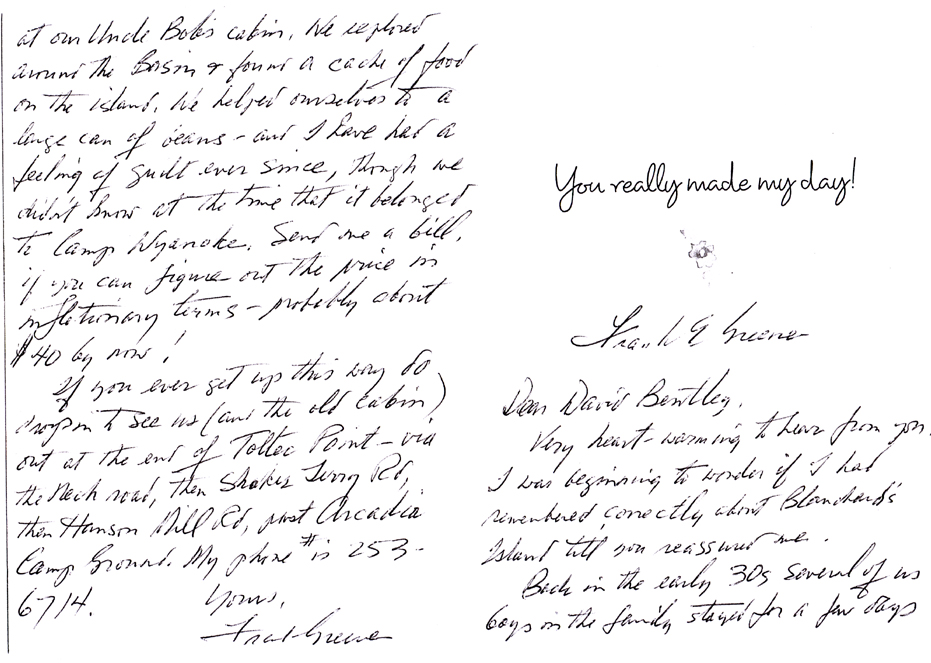 You really made my day!
Frank E Greene
Dear David Bentley,
Very heart-warming to hear from you.
I was beginning to wonder if I had
remembered correctly about Blanchard's
Island till you reassured me.
Back in the early 30s several of us
boys in the family stayed for a few days
at our Uncle Bob's cabin. We explored
around the Basin & found a cache of food
on the island. We helped ourselves to a
large can of beans - and I have had a
feeling of guilt ever since, though we
didn't know at the time that it belonged
to Camp Wyanoke. Send me a bill,
if you can figure out the price in
inflationary terms - probably about
$40 by now!
If you ever get up this way do
drop in to see us (and the old cabin)
out at the end of Toltec Point - via
the Neck road, then Shaker Jerry Rd,
then Hanson Mill Rd, past Arcadia
Camp Ground. My phone # is 253-
6714.
Yours,
Frank Greene